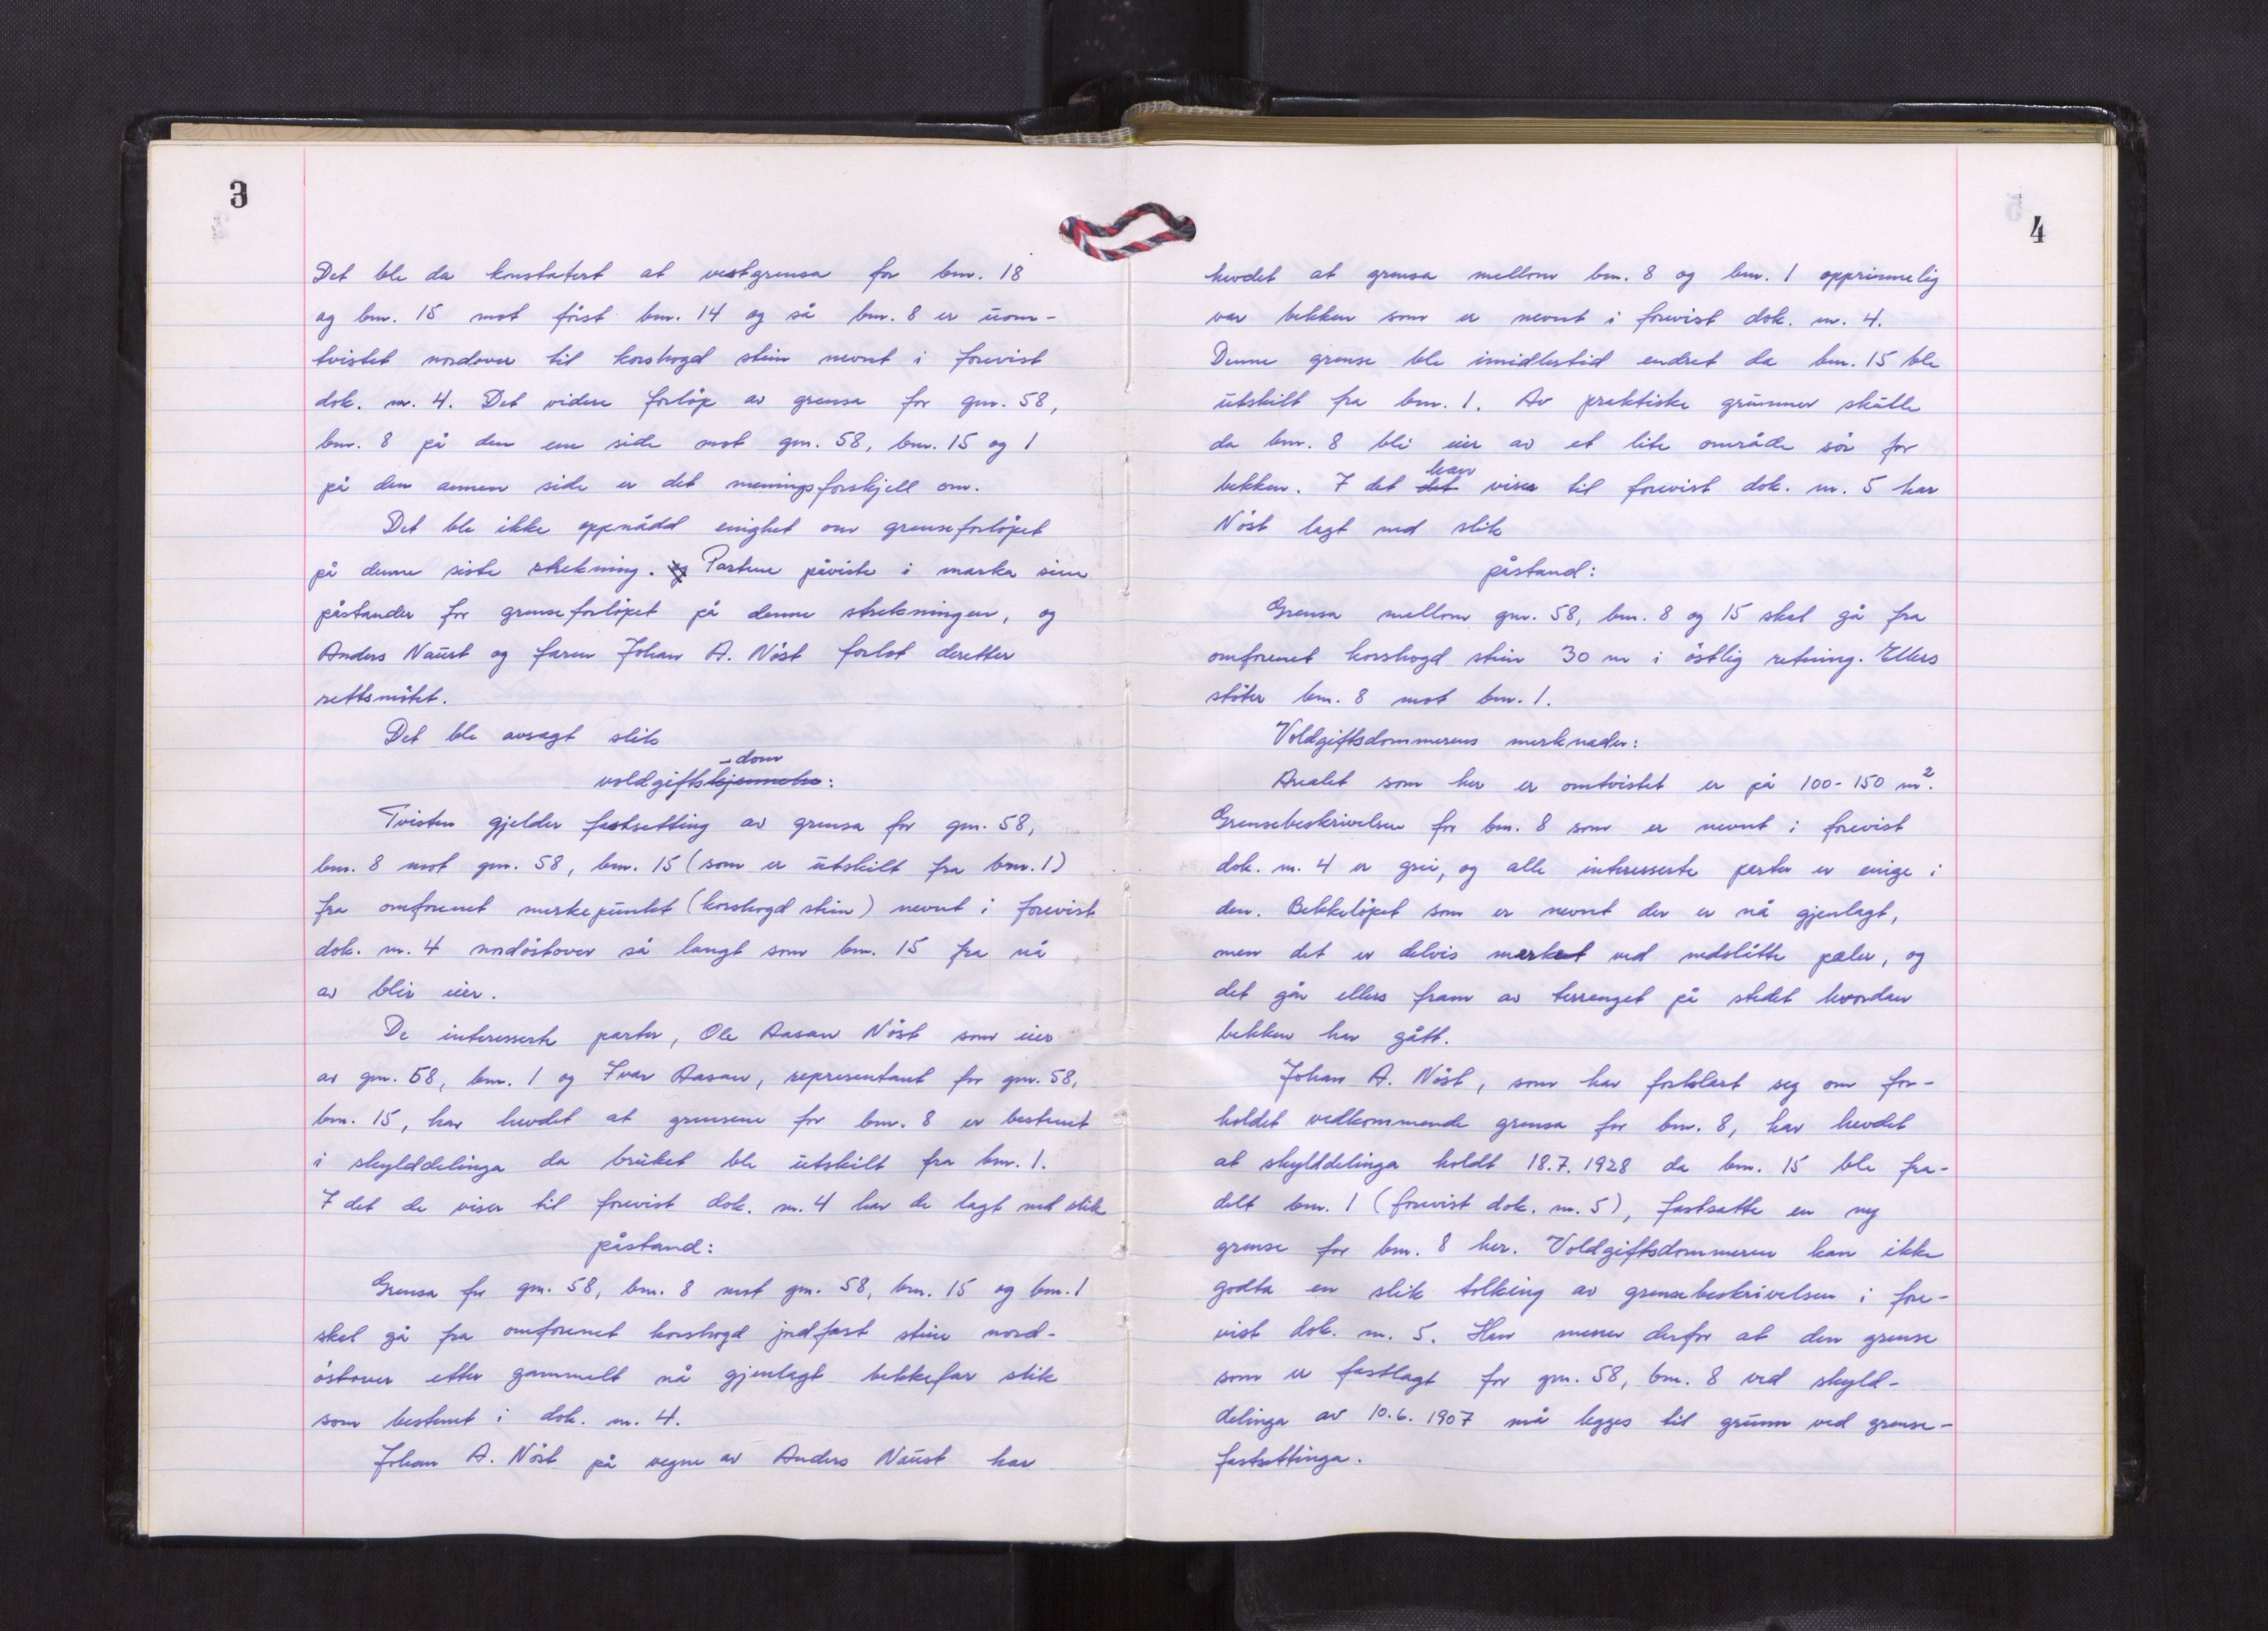 3
Det ble da konstatert at vestgrensa for bnr. 18
og bnr. 15 mot først bnr. 14 og så bnr. 8 er uom-
tvistet nordover til korshogd stein nevnt i forevist
dok. nr. 4. Det videre forløp av grensa for gnr. 58,
bnr. 8 på den ene side mot gnr. 58, bnr. 15 og 1
på den annen side er det meningsforskjell om.
Det ble ikke oppnådd enighet om grenseforløpet
på denne siste strekning. Partene påviste i marka sine
påstander for grenseforløpet på denne strekningen, og
Anders Naust og faren Johan A. Nöst forlot deretter
rettsmøtet.
Det ble avsagt slik
-dom
voldgiftskjennelse:
Tvisten gjelder fastsetting av grensa for gnr. 58,
bnr. 8 mot gnr. 58, bnr. 15 (som er utskilt fra bnr. 1)
fra omforenet merkepunkt (korshogd stein) nevnt i forevist
dok. nr. 4 nordøstover så langt som bnr. 15 fra nå
av blir eier.
De interesserte parter, Ole Aasan Nöst som eier
av gnr. 58, bnr. 1 og Ivar Aasan, representant for gnr. 58,
bnr. 15, har hevdet at grensene for bnr. 8 er bestemt
i skylddelinga da bruket ble utskilt fra bnr. 1.
I det de viser til forevist dok. nr. 4 har de lagt ned slik
påstand:
Grensa for gnr. 58, bnr. 8 mot gnr. 58, bnr. 15 og bnr. 1
skal gå fra omforenet korshogd jordfast stein nord-
østover etter gammelt nå gjenlagt bekkefar slik
som bestemt i dok. nr. 4.
Johan A. Nöst på vegne av Anders Naust har
4
hevdet at grensa mellom bnr. 8 og bnr. 1 opprinnelig
var bekken som er nevnt i forevist dok. nr. 4.
Denne grense ble imidlertid endret da bnr. 15 ble
utskilt fra bnr. 1. Av praktiske grunner skulle
da bnr. 8 bli eier av et lite område sør for
han
bekken. I det det viser til forevist dok. nr. 5 har
Nöst lagt ned slik
påstand:
Grensa mellom gnr. 58, bnr. 8 og 15 skal gå fra
omforenet korshogd stein 30 m i østlig retning. Ellers
støter bnr. 8 mot bnr. 1.
Voldgiftsdommerens merknader:
Arealet som her er omtvistet er på 100-150 m².
Grensebeskrivelsen for bnr. 8 som er nevnt i forevist
dok. nr. 4 er grei, og alle interesserte parter er enige i
den. Bekkeløpet som er nevnt der er nå gjenlagt,
men det er delvis merket ved nedslåtte pæler, og
det går ellers fram av terrenget på stedet hvordan
bekken har gått.
Johan A. Nöst, som har forklart seg om for-
holdet vedkommende grensa for bnr. 8, har hevdet
at skylddelinga holdt 18.7.1928 da bnr. 15 ble fra-
delt bnr. 1 (forevist dok. nr. 5), fastsatte en ny
grense for bnr. 8 her. Voldgiftsdommeren kan ikke
godta en slik tolking av grensebeskrivelsen i fore-
vist dok. nr. 5. Han mener derfor at den grense
som er fastlagt for gnr. 58, bnr. 8 ved skyld-
delinga av 10.6.1907 må legges til grunn ved grense-
fastsettinga.